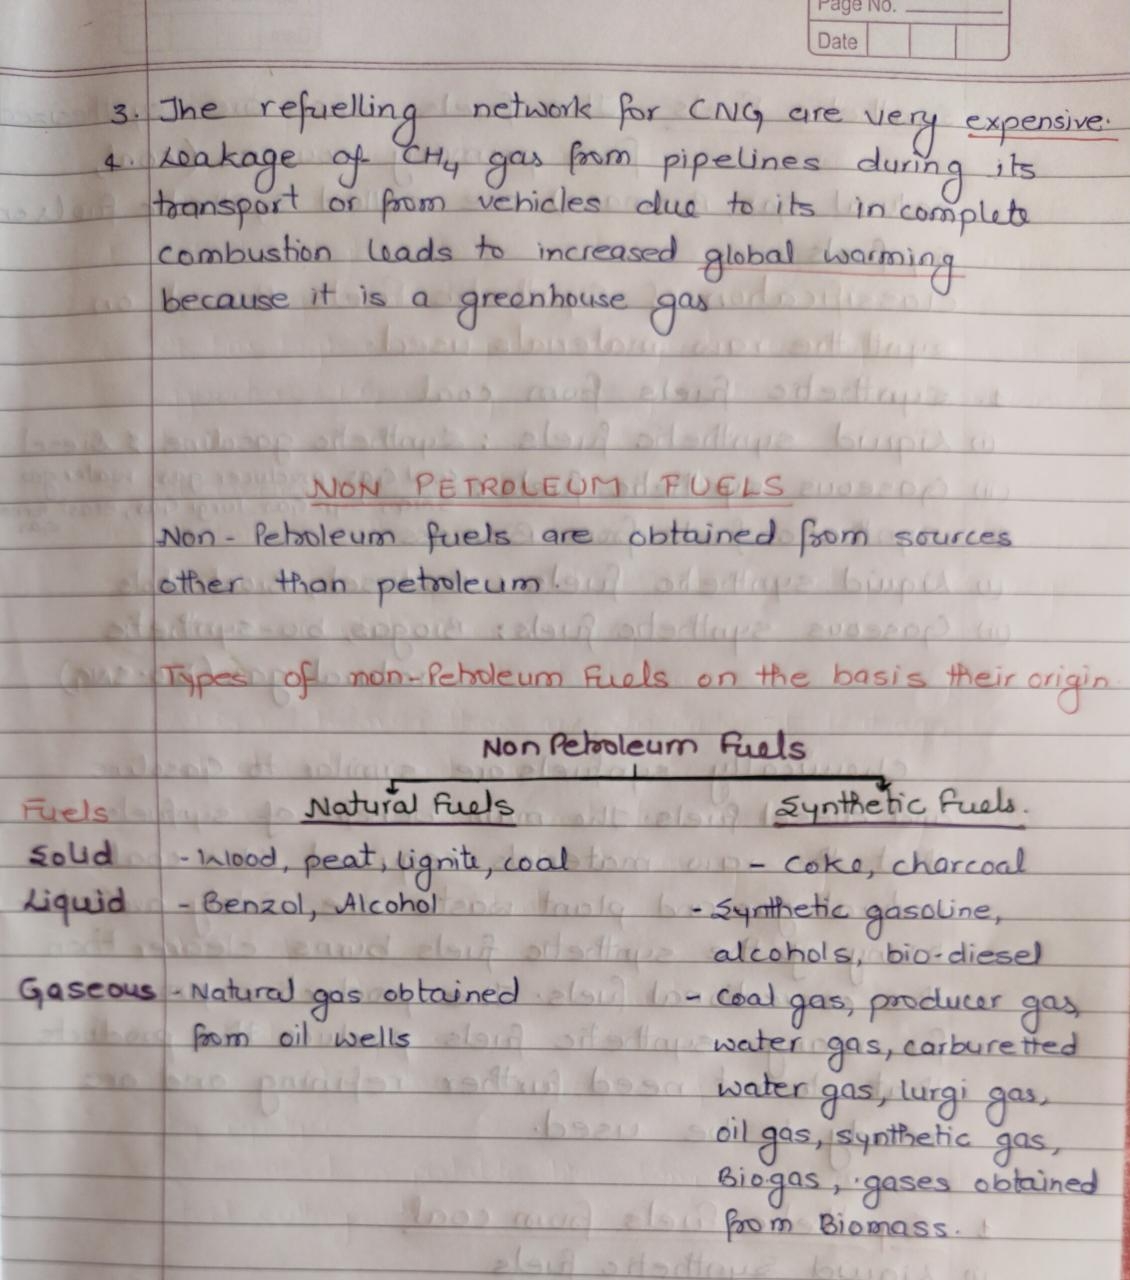 Page No.
Date
3. The refuelling network for CNG are very expensive.
4. Leakage of CH4 gas from pipelines during its
transport or from vehicles due to its in complete
combustion leads to increased global warming
because it is a greenhouse gas
NON PETROLEUM FUELS
Non-Petroleum fuels are obtained from sources
other than petroleum.
Types of non-Petroleum Fuels on the basis their origin.
Non Petroleum Fuels
Fuels Natural Fuels Synthetic Fuels.
Solid - Wood, peat, lignite, coal - Coke, charcoal
Liquid - Benzol, Alcohol - Synthetic gasoline,
alcohols, bio-diesel
Gaseous - Natural gas obtained - Coal gas, producer gas,
from oil wells water gas, carburetted
water gas, lurgi gas,
oil gas, synthetic gas,
Biogas, gases obtained
from Biomass.